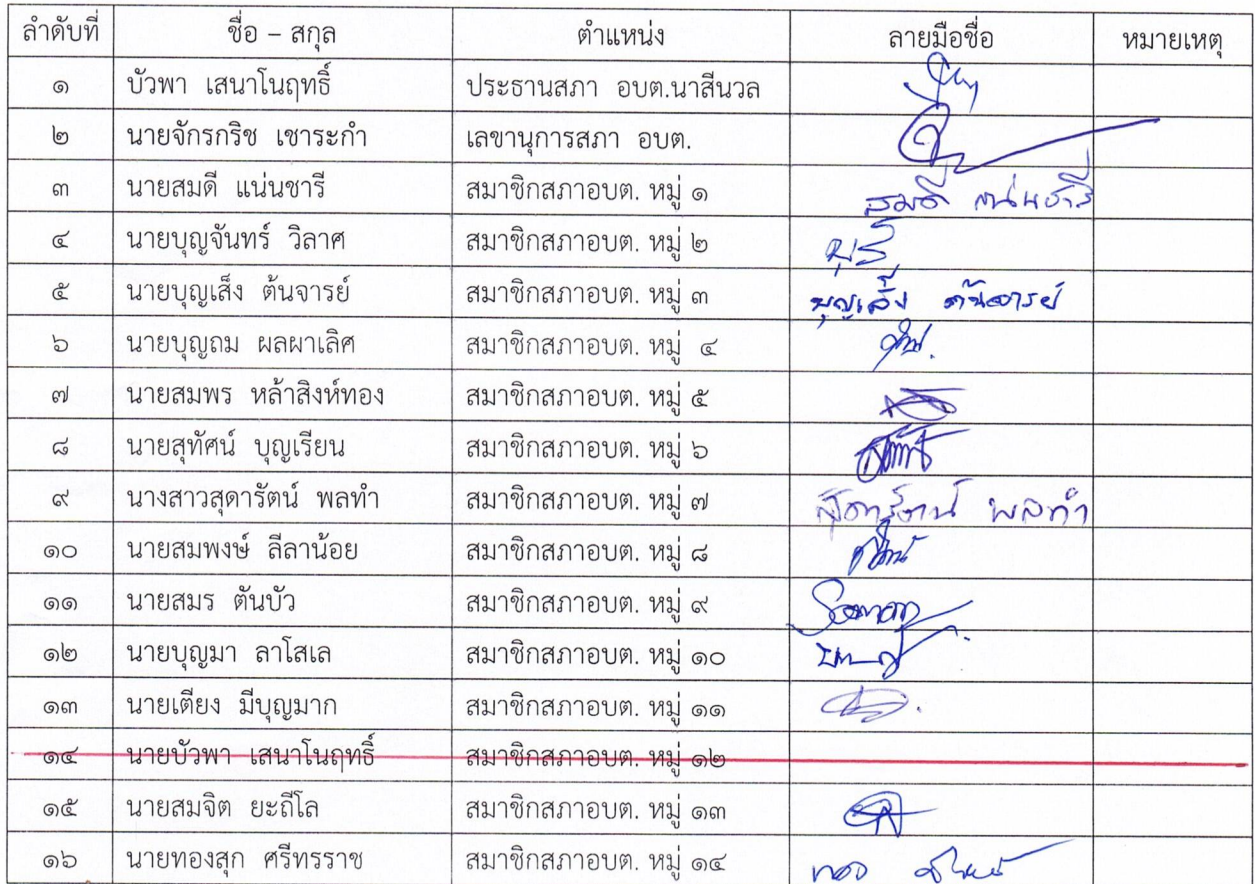 ลำดับที่ ชื่อ – สกุล ตำแหน่ง ลายมือชื่อ หมายเหตุ
๑ บัวพา เสนาโนฤทธิ์ ประธานสภา อบต.นาสีนวล
๒ นายจักรกริช เชาระกำ เลขานุการสภา อบต.
๓ นายสมดี แน่นชารี สมาชิกสภาอบต. หมู่ ๑ สมดี แน่นชารี
๔ นายบุญจันทร์ วิลาศ สมาชิกสภาอบต. หมู่ ๒
๕ นายบุญเส็ง ต้นจารย์ สมาชิกสภาอบต. หมู่ ๓ บุญเส็ง ต้นจารย์
๖ นายบุญถม ผลผาเลิศ สมาชิกสภาอบต. หมู่ ๔
๗ นายสมพร หล้าสิงห์ทอง สมาชิกสภาอบต. หมู่ ๕
๘ นายสุทัศน์ บุญเรียน สมาชิกสภาอบต. หมู่ ๖
๙ นางสาวสุดารัตน์ พลทำ สมาชิกสภาอบต. หมู่ ๗ สุดารัตน์ พลทำ
๑๐ นายสมพงษ์ ลีลาน้อย สมาชิกสภาอบต. หมู่ ๘
๑๑ นายสมร ตันบัว สมาชิกสภาอบต. หมู่ ๙
๑๒ นายบุญมา ลาโสเล สมาชิกสภาอบต. หมู่ ๑๐
๑๓ นายเตียง มีบุญมาก สมาชิกสภาอบต. หมู่ ๑๑
๑๔ นายบัวพา เสนาโนฤทธิ์ สมาชิกสภาอบต. หมู่ ๑๒
๑๕ นายสมจิต ยะถีโล สมาชิกสภาอบต. หมู่ ๑๓
๑๖ นายทองสุก ศรีทรราช สมาชิกสภาอบต. หมู่ ๑๔